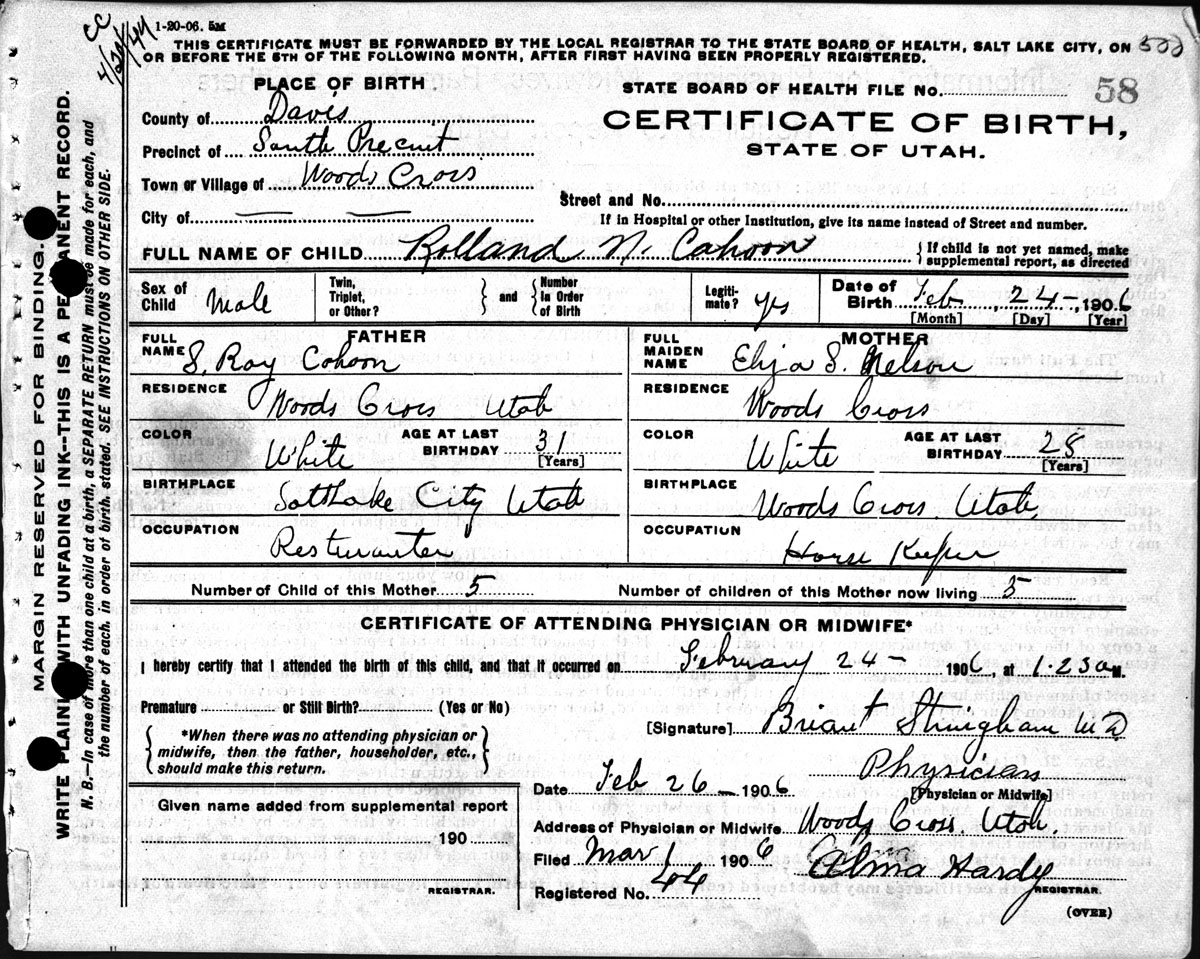 1-20-06. 5M
CC
4/20/44
THIS CERTIFICATE MUST BE FORWARDED BY THE LOCAL REGISTRAR TO THE STATE BOARD OF HEALTH, SALT LAKE CITY, ON
OR BEFORE THE 5TH OF THE FOLLOWING MONTH, AFTER FIRST HAVING BEEN PROPERLY REGISTERED.
PLACE OF BIRTH.
STATE BOARD OF HEALTH FILE NO. 58
County of Davis
CERTIFICATE OF BIRTH,
Precinct of South Precint
STATE OF UTAH.
Town or Village of Woods Cross
Street and No.
City of — —
If in Hospital or other Institution, give its name instead of Street and number.
FULL NAME OF CHILD Rolland N. Cahoon { If child is not yet named, make supplemental report, as directed
Sex of Child Male Twin, Triplet, or Other? } and { Number In Order of Birth Legiti-mate? yes Date of Birth Feb 24- 1906
[Month] [Day] [Year]
FATHER MOTHER
FULL NAME S. Ray Cohoon FULL MAIDEN NAME Elyza S. Nelson
RESIDENCE Woods Cross Utah RESIDENCE Woods Cross
COLOR White AGE AT LAST BIRTHDAY 31 [Years] COLOR White AGE AT LAST BIRTHDAY 28 [Years]
BIRTHPLACE Salt Lake City Utah BIRTHPLACE Woods Cross Utah
OCCUPATION Resturanter OCCUPATION House Keeper
Number of Child of this Mother 5 Number of children of this Mother now living 5
CERTIFICATE OF ATTENDING PHYSICIAN OR MIDWIFE*
I hereby certify that I attended the birth of this child, and that it occurred on February 24- 1906, at 1.230a M.
Premature or Still Birth? (Yes or No)
[Signature] Briant Stringham MD
{ *When there was no attending physician or
midwife, then the father, householder, etc.,
should make this return. }
Physician
Date Feb 26- 1906 [Physician or Midwife]
Given name added from supplemental report
Address of Physician or Midwife Woods Cross. Utah.
190
Filed Mar 1 1906 Alma Hardy
REGISTRAR.
Registered No. 44
REGISTRAR.
(OVER)
MARGIN RESERVED FOR BINDING.
WRITE PLAINLY WITH UNFADING INK--THIS IS A PERMANENT RECORD.
N. B.—In case of more than one child at birth, a SEPARATE RETURN must be made for each, and
the number of each, in order of birth, stated. SEE INSTRUCTIONS ON OTHER SIDE.